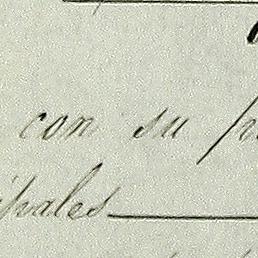 con su
ipales